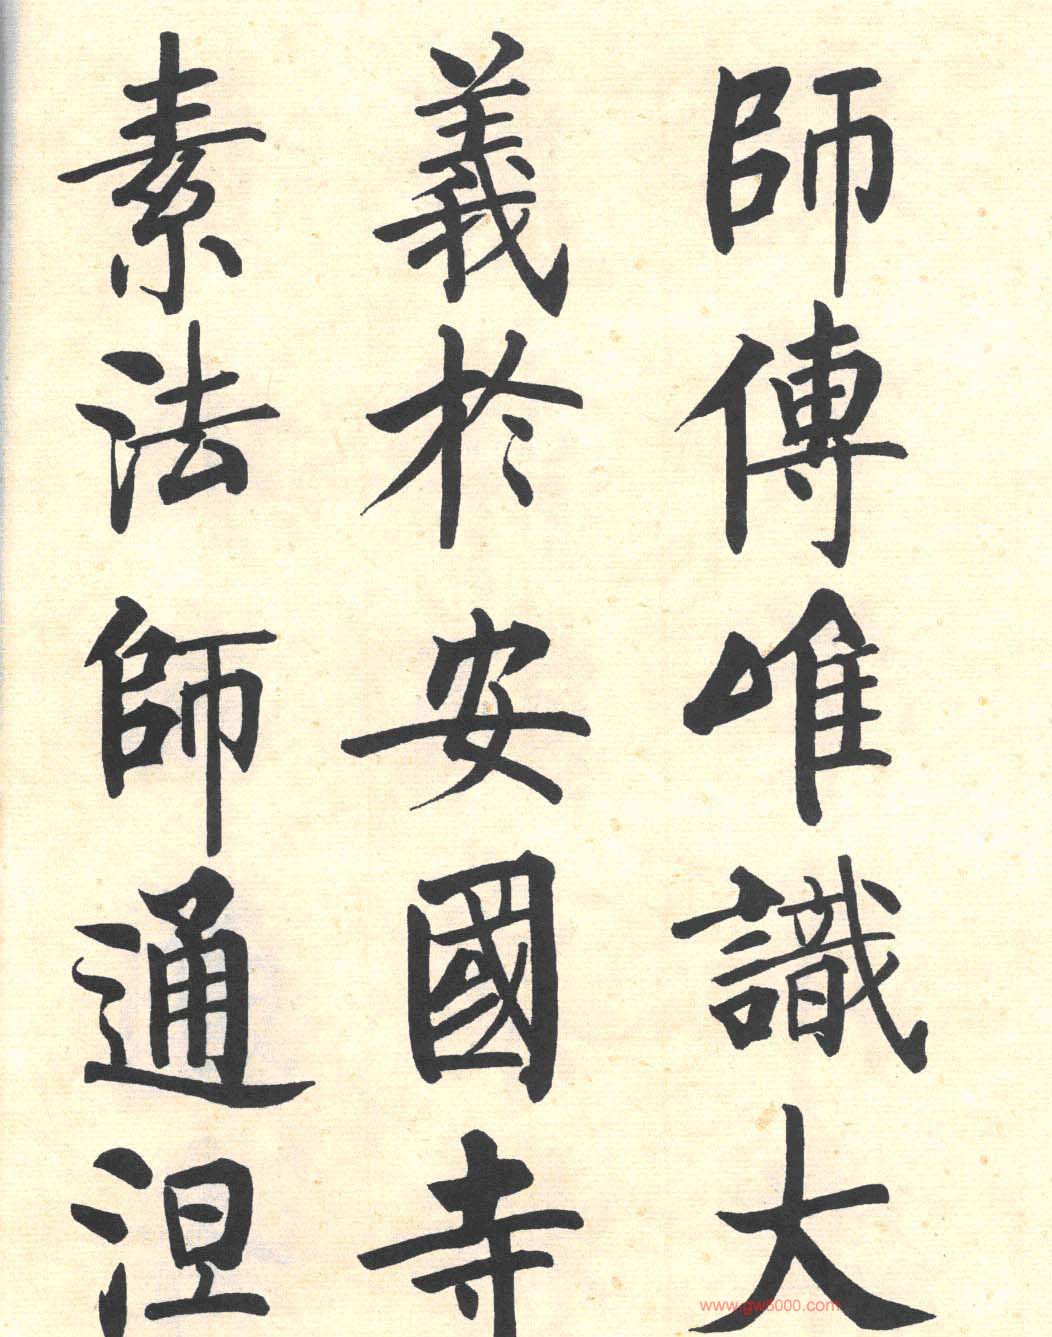 師傳唯識大
義於安國寺
素法師通涅
www.gw8000.com